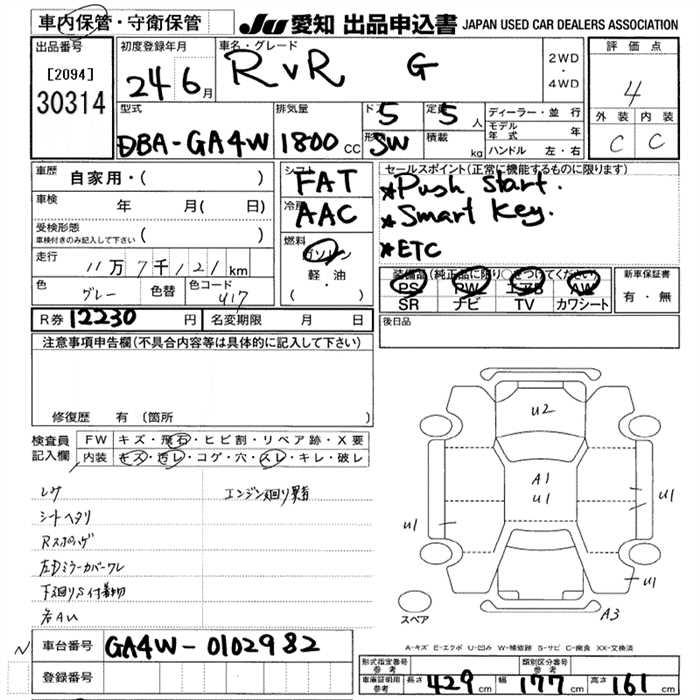 車内保管・守衛保管
JU 愛知 出品申込書 JAPAN USED CAR DEALERS ASSOCIATION
出品番号
[2094]
30314
初度登録年月
24 6月
車名・グレード
RVR G
2WD
・
4WD
評価点
4
外装 内装
C C
型式
DBA-GA4W
排気量
1800 CC
ドア
5
定員
5人
形状
SW
積載
kg
ディーラー・並行
モデル年式 年
ハンドル 左・右
車歴
自家用・( )
車検
年 月( 日)
受検形態
車検付きのみ記入して下さい ( )
走行
11万7千121km
色
グレー
色替
色コード
U17
シフト
FAT
冷房
AAC
燃料
ガソリン
軽・油
( ・ )
セールスポイント(正常に機能するものに限ります)
*Push Start.
*Smart Key.
*ETC
装備品(純正品に限り○をつけてください)
PS PW エアB AW
SR ナビ TV カワシート
新車保証書
有・無
R券 12230 円
名変期限 月 日
後日品
注意事項申告欄(不具合内容等は具体的に記入して下さい)
修復歴 有(箇所 )
検査員記入欄
FW キズ・飛石・ヒビ割・リペア跡・X要
内装 キズ・汚レ・コゲ・穴・スレ・キレ・破レ
シートヘタリ
エンジン廻り異音
左Dミラーカバーワレ
下廻りS付着物
U2
A1
U1
U1
U1
A3
スペア
A-キズ E-エクボ U-凹み W-補修跡 S-サビ C-腐食 XX-交換済
N
車台番号 GA4W-0102982
登録番号
形式指定番号
参考
類別区分番号
参考
車庫証明用
参考
長さ 429cm 幅 177cm 高さ 161cm